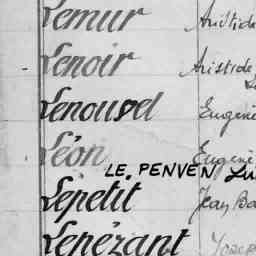 Lemur Aristide
Lenoir Aristide
Lenouvel Eugène
Léon Eugène
LE PENVEN Lu
Lepetit Jean Ba
Lepézant Josep